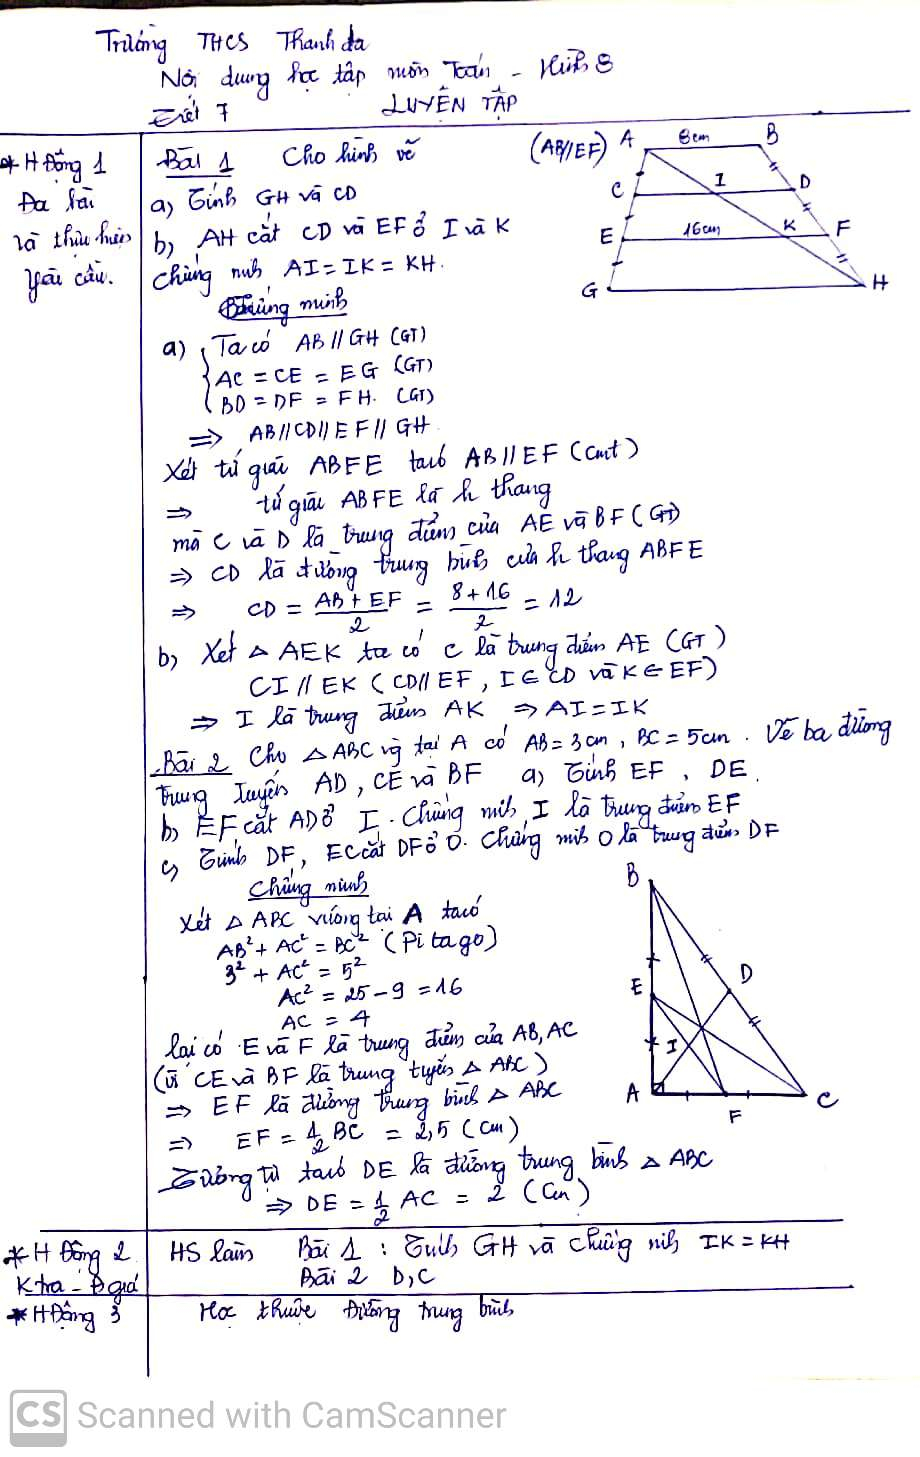 Trường THCS Thanh đa
Nội dung học tập môn Toán - Hình 8
Tiết 7 LUYỆN TẬP
* H Đông 1
Đọc bài
và thực hiện
yêu cầu.
Bài 1 Cho hình vẽ (AB//EF)
a) Tính GH và CD
b) AH cắt CD và EF ở I và K
Chứng minh AI = IK = KH.
Chứng minh
A 8cm B
C I D
E 16cm K F
G H
a) Ta có AB // GH (GT)
AC = CE = EG (GT)
BD = DF = FH. (GT)
=> AB//CD//EF//GH
Xét tứ giác ABFE ta có AB // EF (cmt)
=> tứ giác ABFE là h thang
mà C và D là trung điểm của AE và BF (GT)
=> CD là đường trung bình của h thang ABFE
=> CD = AB + EF / 2 = 8 + 16 / 2 = 12
b) Xét △ AEK ta có C là trung điểm AE (GT)
CI // EK (CD//EF, I ∈ CD và K ∈ EF)
=> I là trung điểm AK => AI = IK
Bài 2 Cho △ ABC vg tại A có AB = 3 cm, BC = 5cm. Vẽ ba đường
trung tuyến AD, CE và BF a) Tính EF, DE.
b) EF cắt AD ở I. Chứng minh I là trung điểm EF
c) Tính DF, EC cắt DF ở O. Chứng minh O là trung điểm DF
Chứng minh
Xét △ ABC vuông tại A ta có
AB² + AC² = BC² (Pi ta go)
3² + AC² = 5²
AC² = 25 - 9 = 16
AC = 4
lại có E và F là trung điểm của AB, AC
(vì CE và BF là trung tuyến △ ABC)
=> EF là đường trung bình △ ABC
=> EF = 1/2 BC = 2,5 (cm)
Tương tự ta có DE là đường trung bình △ ABC
=> DE = 1/2 AC = 2 (cm)
B
D
E
I
A F C
* H Đông 2
K tra - Đ giá
HS làm Bài 1 : Tính GH và chứng minh IK = KH
Bài 2 b, c
* H Đông 3 Học thuộc đường trung bình
CS Scanned with CamScanner